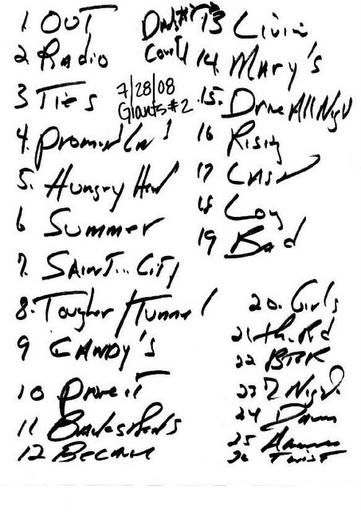 1 OUT
2 Radio
3 Ties
4. Promised Ln's
5. Hungry Hea
6 Summer
7. SAINT... City
8. Tougher / Tunnel
9 CANDY'S
10 Prove iT
11 Backstreets
12 Because
7/28/08
Giants #2
13 Livin
14. Mary's
15. Drive All Night
16 Rising
17
18 Lon
19 Bad
20. Girls
21 th. Rd
22 BTR
23 7 Nigh
24
25
26 Twist